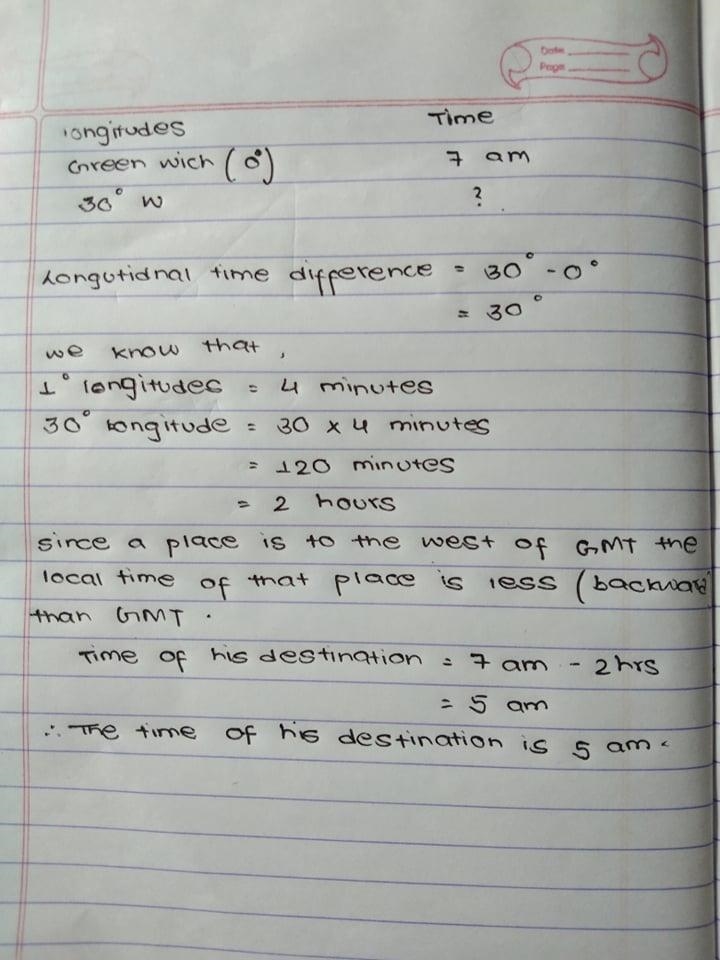 Date
Page
longitudes Time
Green wich (0°) 7 am
30° W ?
Longutidnal time difference = 30° - 0°
= 30°
we know that,
1° longitudes = 4 minutes
30° longitude = 30 x 4 minutes
= 120 minutes
= 2 hours
since a place is to the west of GMT the
local time of that place is less (backward
than GMT.
Time of his destination = 7 am - 2hrs
= 5 am
∴ The time of his destination is 5 am.